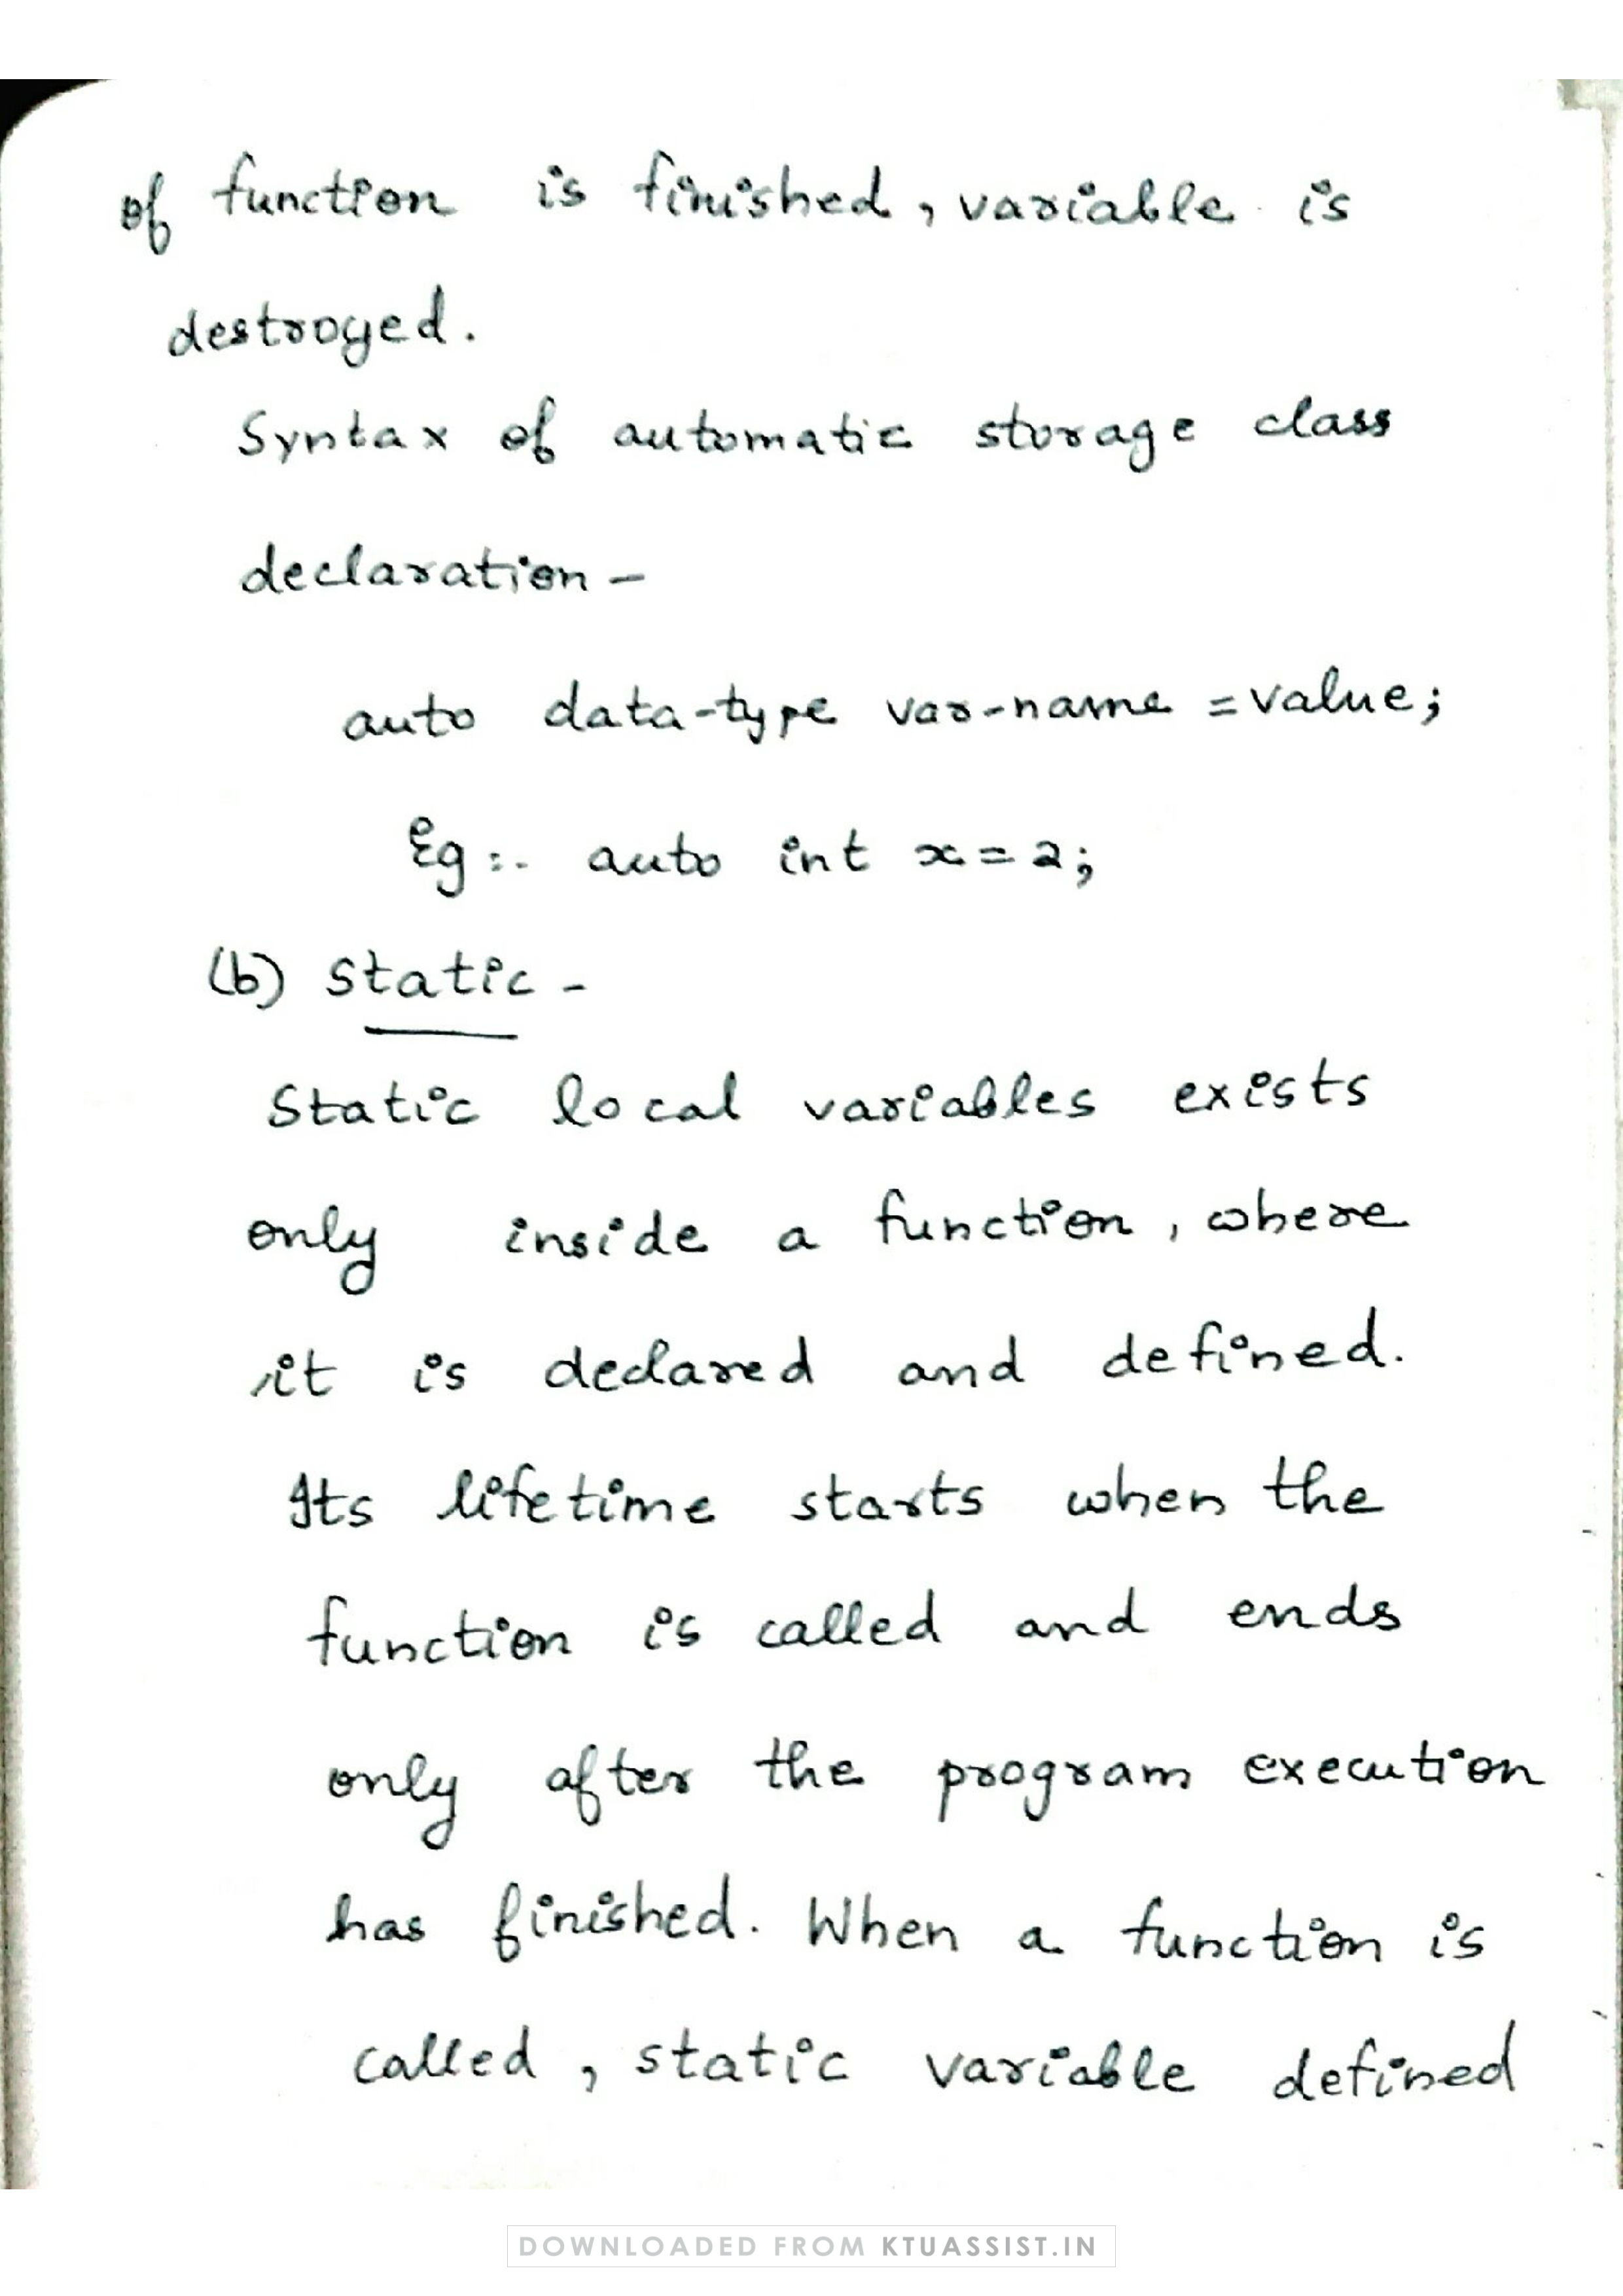 of function is finished, variable is
destroyed.
Syntax of automatic storage class
declaration -
auto data-type var-name = value;
Eg :- auto int x = 2;
(b) Static -
Static local variables exists
only inside a function, where
it is declared and defined.
Its lifetime starts when the
function is called and ends
only after the program execution
has finished. When a function is
called, static variable defined
DOWNLOADED FROM KTUASSIST.IN